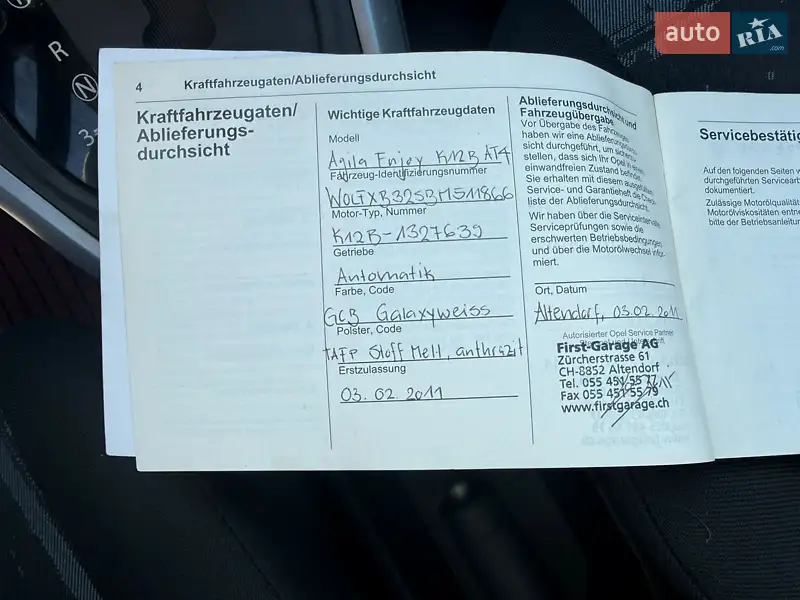 auto RIA .com
R
N
3
4 Kraftfahrzeugaten/Ablieferungsdurchsicht
Kraftfahrzeugaten/
Ablieferungs-
durchsicht
Wichtige Kraftfahrzeugdaten
Modell
Agila Enjoy K12B AT4
Fahrzeug-Identifizierungsnummer
W0LTXB32SBM511866
Motor-Typ, Nummer
K12B-1327639
Getriebe
Automatik
Farbe, Code
GCB Galaxyweiss
Polster, Code
TAFP Stoff Melt, anthrazit
Erstzulassung
03. 02. 2011
Ablieferungsdurchsicht und
Fahrzeugübergabe
Vor Übergabe des Fahrzeuges
haben wir eine Ablieferungs
sicht durchgeführt, um sicherzu-
stellen, dass sich Ihr Opel in
einwandfreien Zustand befindet.
Sie erhalten mit diesem ausgefüllten
Service- und Garantieheft die Check-
liste der Ablieferungsdurchsicht.
Wir haben über die Serviceintervalle,
Serviceprüfungen sowie die
erschwerten Betriebsbedingungen
und über die Motorölwechsel infor-
miert.
Ort, Datum
Altendorf, 03.02.2011
Autorisierter Opel Service Partner
First-Garage AG
Zürcherstrasse 61
CH-8852 Altendorf
Tel. 055 451 55 77
Fax 055 451 55 79
www.firstgarage.ch
Servicebestätig
Auf den folgenden Seiten w
durchgeführten Servicearb
dokumentiert.
Zulässige Motorölqualität
Motorölviskositäten entne
bitte der Betriebsanleitun